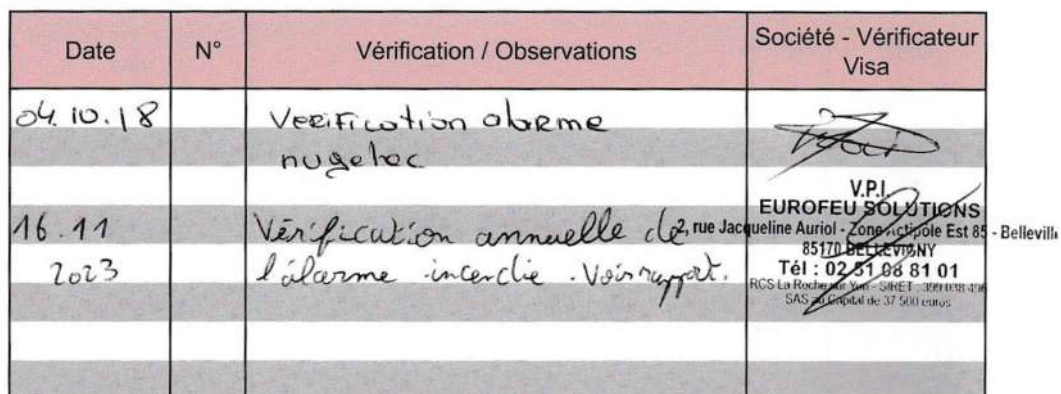 Date N° Vérification / Observations Société - Vérificateur
Visa
04.10.18 Verification alarme
nugelec
16.11 Vérification annuelle de
2023 l'alarme incendie. Voir rapport.
V.P.I.
EUROFEU SOLUTIONS
2, rue Jacqueline Auriol - Zone Actipole Est 85 - Belleville
85170 BELLEVIGNY
Tél : 02 51 08 81 01
RCS La Roche sur Yon - SIRET : 399 038 496
SAS au Capital de 37 500 euros